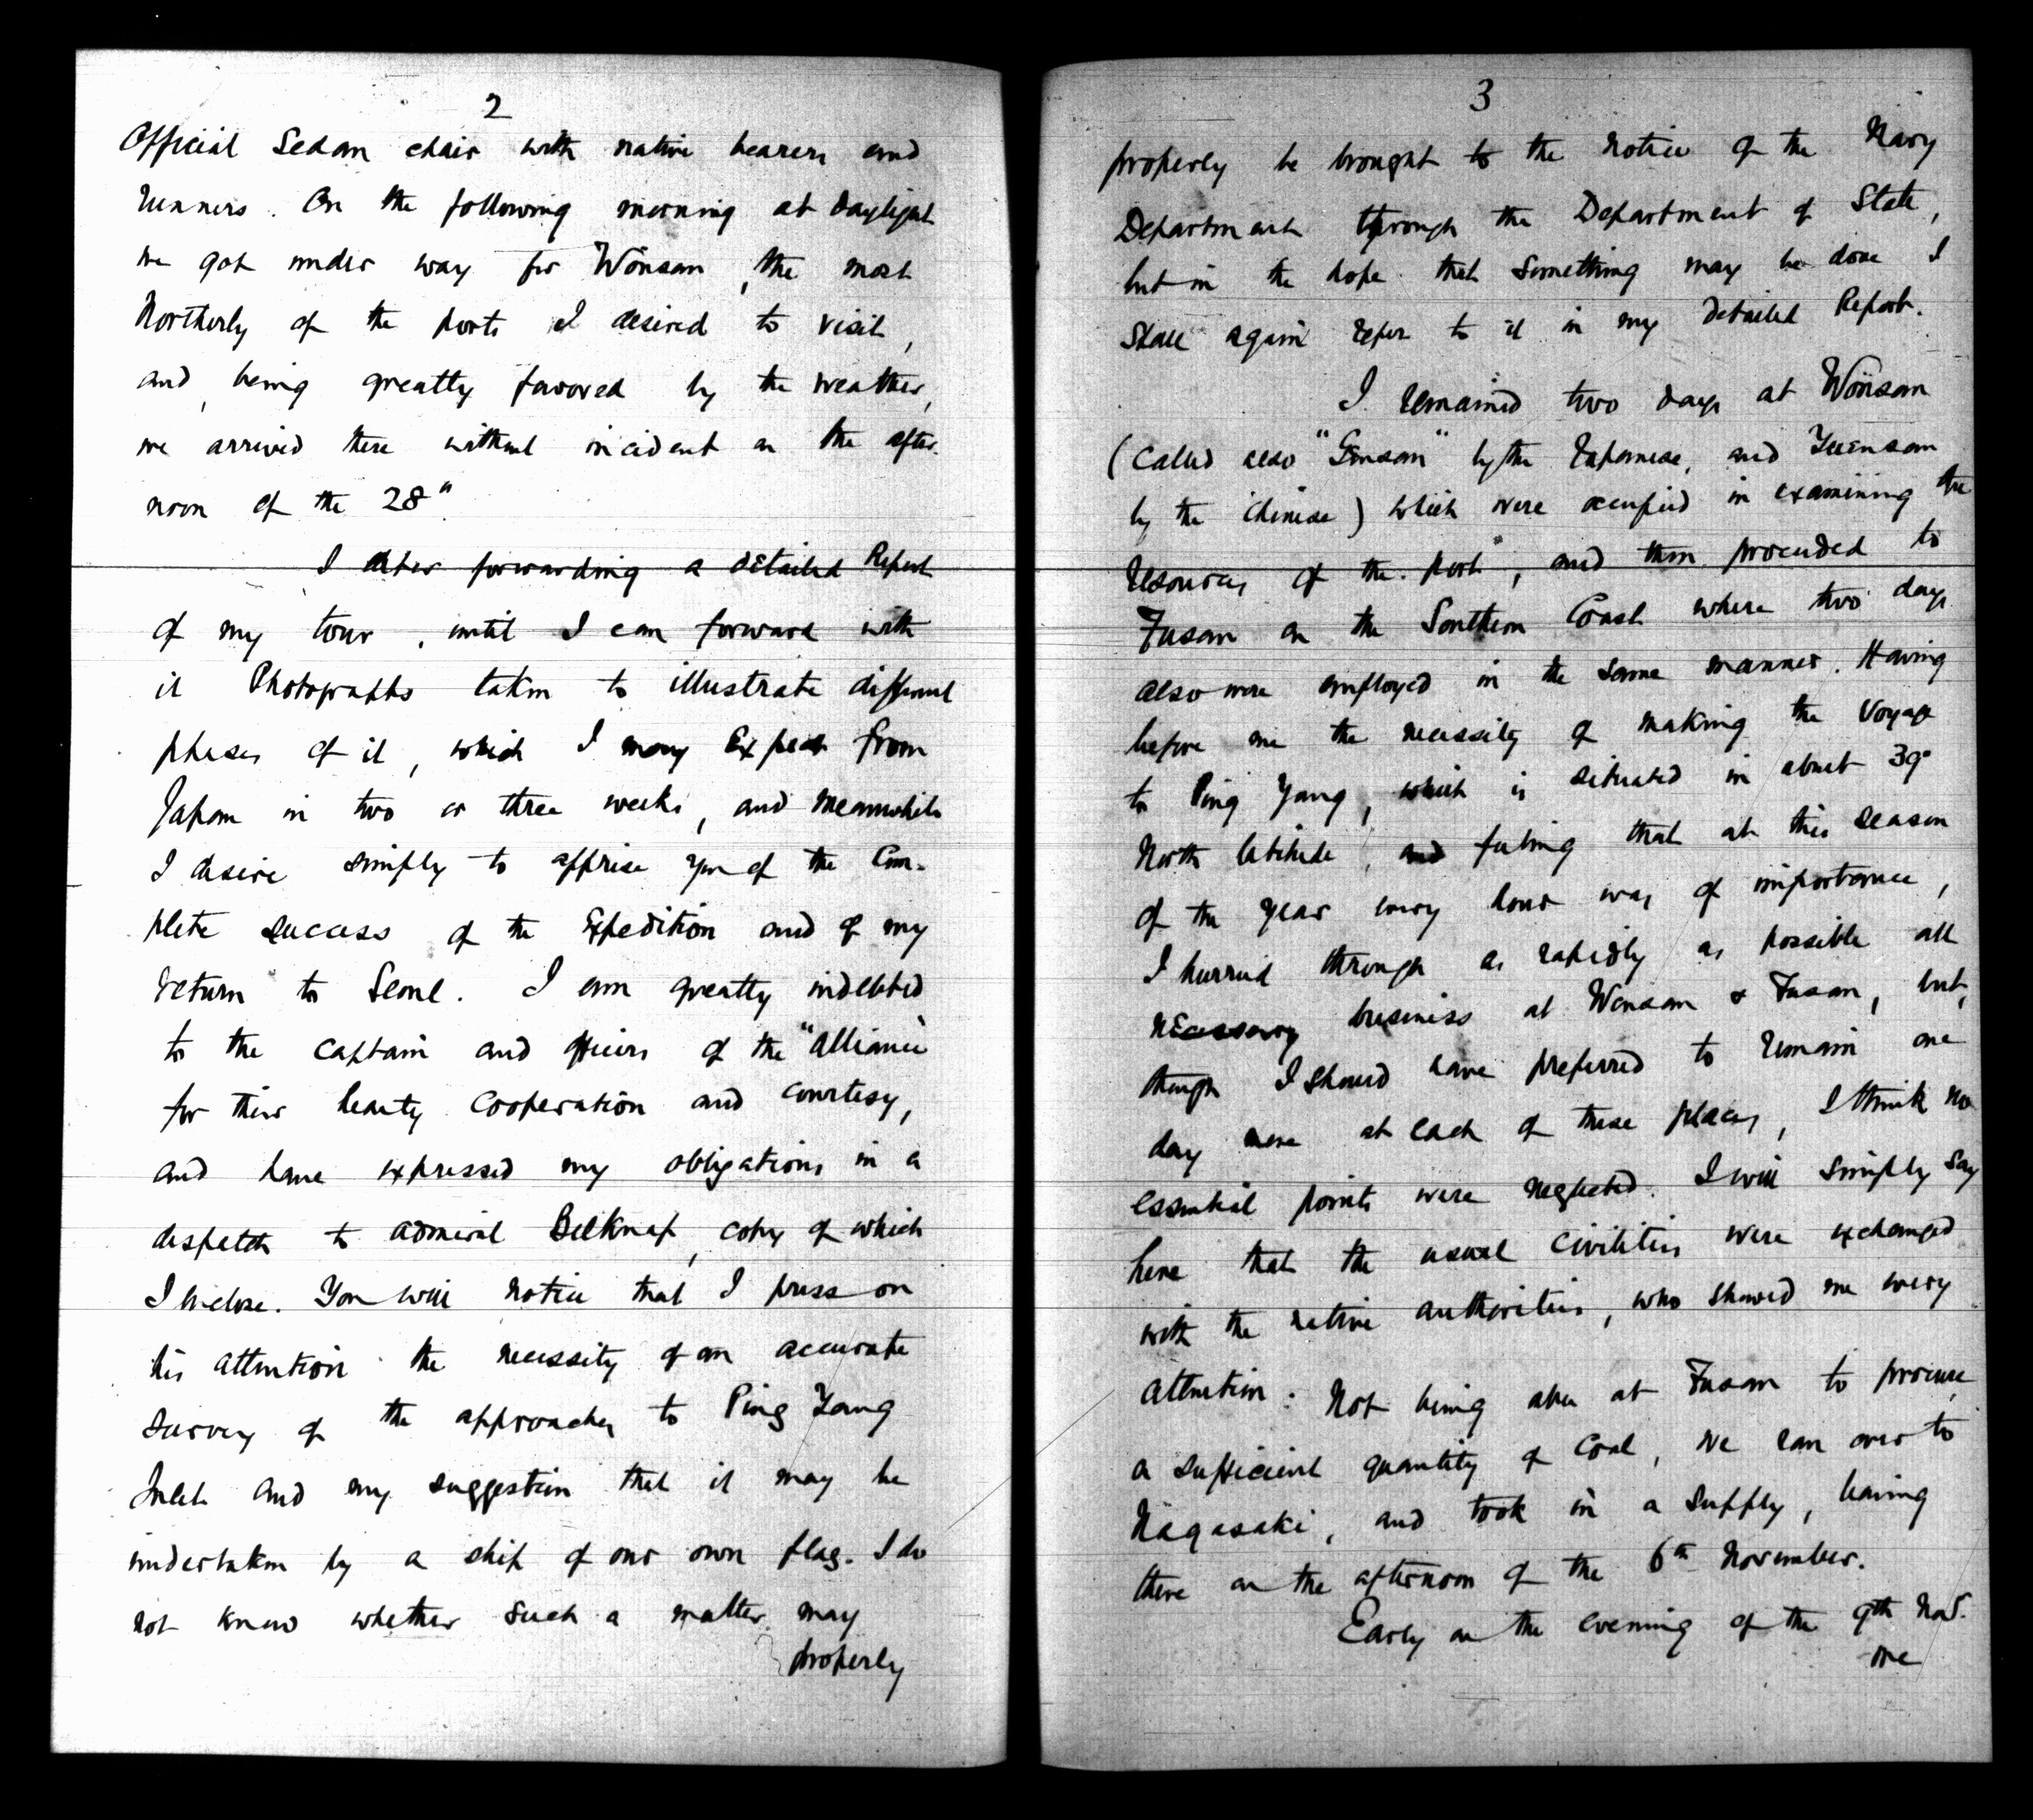 2
Official Sedan chair with native bearers and
runners. On the following morning at daylight
we got under way for Wönsan, the most
Northerly of the ports I desired to visit,
and, being greatly favored by the weather,
we arrived there without incident on the after-
noon of the 28"
I defer forwarding a detailed Report
of my tour, until I can forward with
it Photographs taken to illustrate different
phases of it, which I may Expect from
Japan in two or three weeks, and meanwhile
I desire simply to apprise you of the Com-
plete success of the Expedition and of my
return to Seoul. I am greatly indebted
to the Captain and officers of the "Alliance"
for their hearty Cooperation and courtesy,
and have expressed my obligations in a
despatch to Admiral Belknap, copy of which
I inclose. You will notice that I press on
his attention the necessity of an accurate
survey of the approaches to Ping Yang
Inlet and my suggestion that it may be
undertaken by a ship of our own flag. I do
not know whether such a matter may
properly
3
properly be brought to the notice of the Navy
Department through the Department of State,
but in the hope that something may be done I
shall again refer to it in my detailed Report.
I remained two days at Wönsan
(Called also "Gensan" by the Japanese, and Yuensan
by the Chinese) which were occupied in examining the
resources of the port, and then proceeded to
Fusan on the Southern Coast where two days
also were employed in the same manner. Having
before me the necessity of making the Voyage
to Ping Yang, which is situated in about 39°
North latitude, and feeling that at this season
of the year every hour was of importance,
I hurried through as rapidly as possible all
necessary business at Wonsan & Fusan, but,
though I should have preferred to remain one
day more at each of these places, I think no
essential points were neglected. I will simply say
here that the usual civilities were exchanged
with the native authorities, who showed me every
attention. Not being able at Fusan to procure
a sufficient quantity of Coal, we ran over to
Nagasaki, and took in a supply, leaving
there on the afternoon of the 6th November.
Early on the evening of the 9th Nov.
we